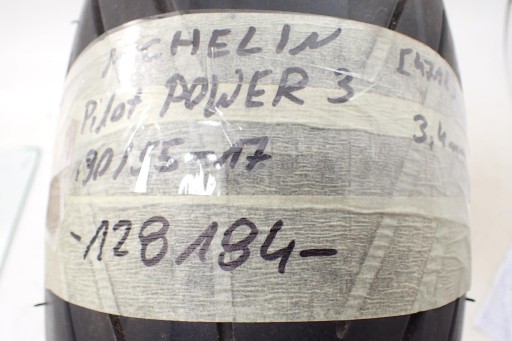 MICHELIN
Pilot POWER 3
190/55-17
3,4mm
-128184-